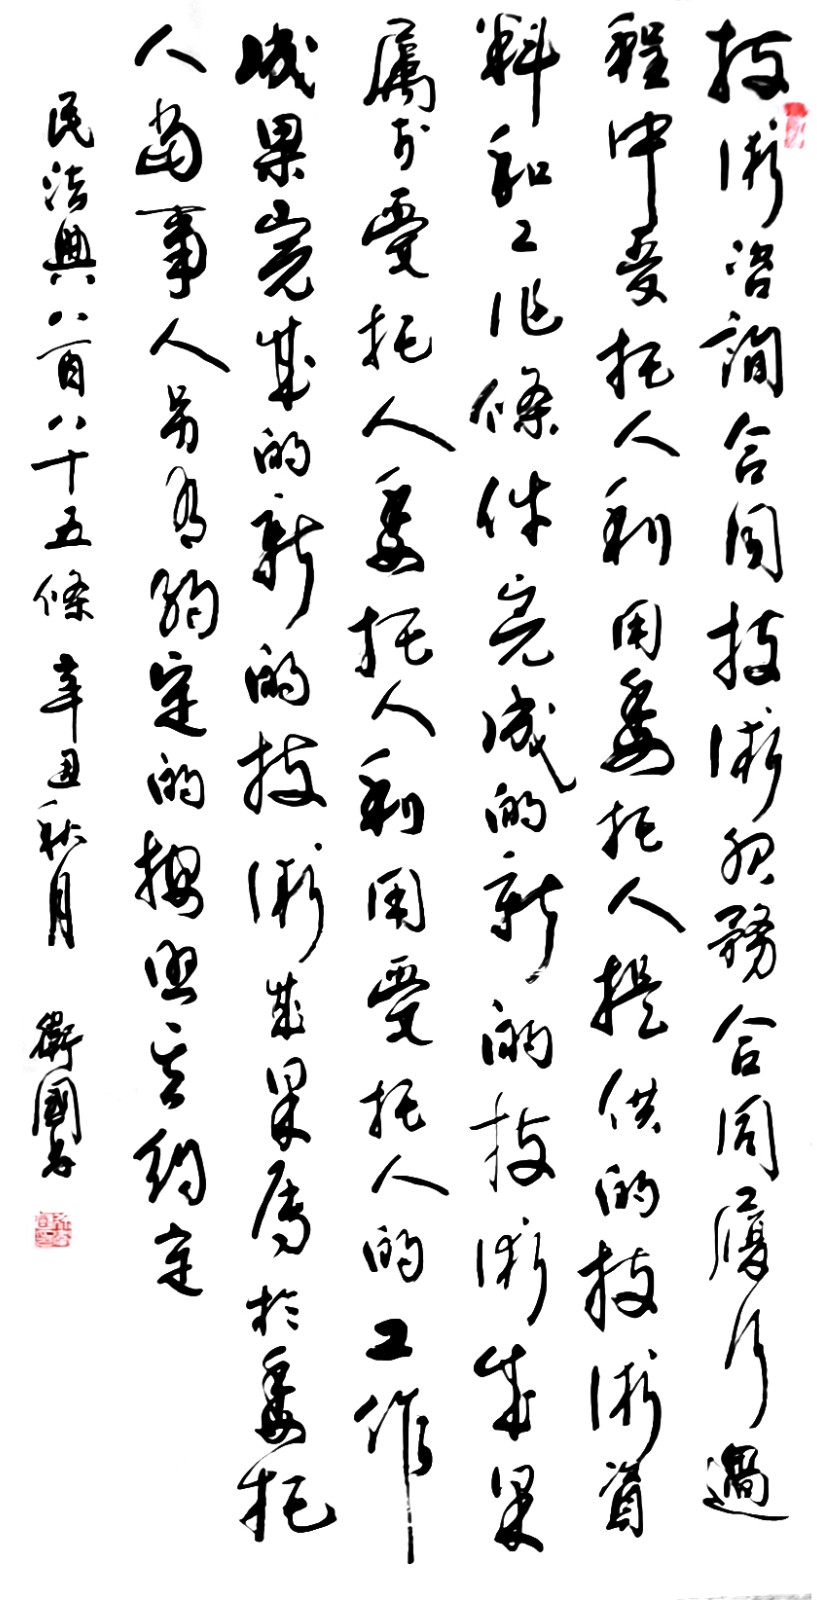 技術咨詢合同技術服務合同履行過
程中受托人利用委托人提供的技術資
料和工作條件完成的新的技術成果
屬於受托人委托人利用受托人的工作
成果完成的新的技術成果屬於委托
人當事人另有約定的按照其約定
民法典八百八十五條 辛丑秋月 衛國書